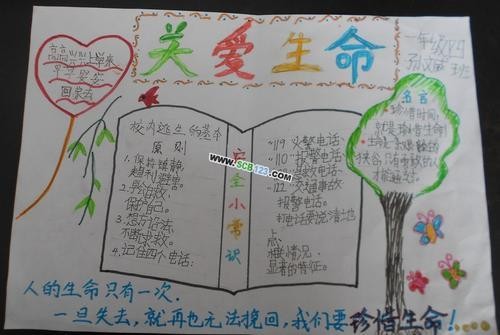 关爱生命
一年级四班
高高兴兴上学来
平平安安
回家去
校内逃生的基本
原则
1.保持镇静,
趋利避害。
2.学会自救,
保护自己。
3.想方设法,
不断求救。
4.记住四个电话:
安全小常识
119 火警电话;
110 报警电话;
急救电话;
122 交通事故
报警电话。
打电话要说清地
点、
相关情况、
显著的特征。
名言
珍惜时间,
就是珍惜生命!
才能通过。
www.SCB123.com
人的生命只有一次.
一旦失去,就再也无法挽回,我们要珍惜生命!...